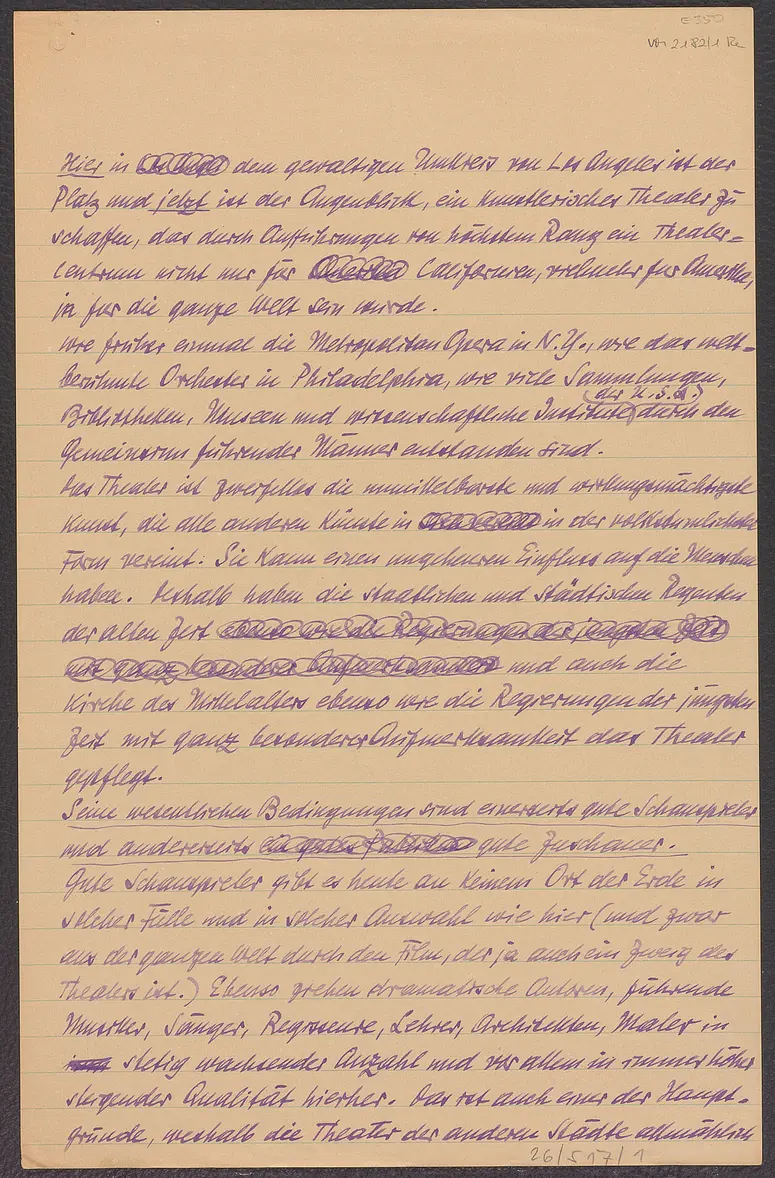 E 350
2182/1 Re
Hier in dem gewaltigen Umkreis von Los Angeles ist der
Platz und jetzt ist der Augenblick, ein künstlerisches Theater zu
schaffen, das durch Aufführungen von höchstem Rang ein Theater-
centrum nicht nur für America Californien, vielmehr für Amerika,
ja für die ganze Welt sein würde.
wie früher einmal die Metropolitan Opera in N.Y., wie das welt-
berühmte Orchester in Philadelphia, wie viele Sammlungen,
(der U.S.A.)
Bibliotheken, Museen und wissenschaftliche Institute durch den
Gemeinsinn führender Männer entstanden sind.
Das Theater ist zweifellos die unmittelbarste und wirkungsmächtigste
Kunst, die alle anderen Künste in in der volkstümlichsten
Form vereint. Sie kann einen ungeheuren Einfluss auf die Menschen
haben. Deshalb haben die staatlichen und städtischen Regenten
der alten Zeit ebenso wie die Regierungen der jüngsten Zeit
mit ganz besonderer Aufmerksamkeit und auch die
Kirche des Mittelalters ebenso wie die Regierungen der jüngsten
Zeit mit ganz besonderer Aufmerksamkeit das Theater
gepflegt.
Seine wesentlichen Bedingungen sind einerseits gute Schauspieler
und andererseits ein gutes Publikum gute Zuschauer.
Gute Schauspieler gibt es heute an keinem Ort der Erde in
solcher Fülle und in solcher Auswahl wie hier (und zwar
aus der ganzen Welt durch den Film, der ja auch ein Zweig des
Theaters ist.) Ebenso ziehen dramatische Autoren, führende
Musiker, Sänger, Regisseure, Lehrer, Architekten, Maler in
stetig wachsender Anzahl und vor allem in immer höher
steigender Qualität hierher. Das ist auch einer der Haupt-
gründe, weshalb die Theater der anderen Städte allmählich
26/517/1